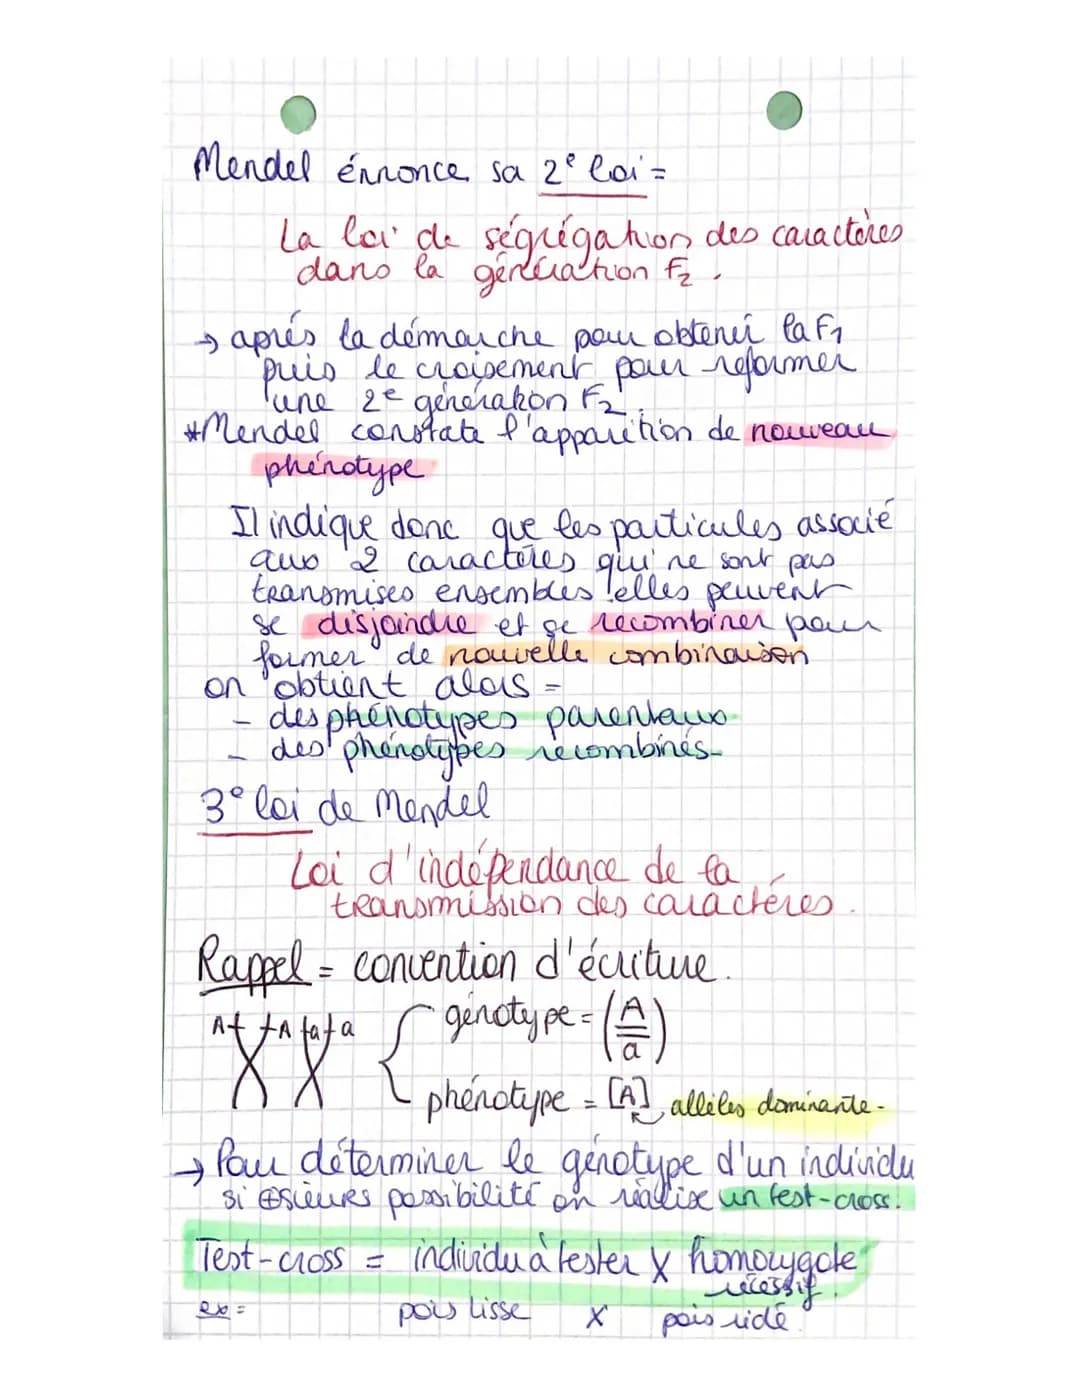 Mendel énnonce sa 2e loi =
La loi de ségrégation des caractères
dans la génération F2.
→ aprés la démarche pour obtenir la F1
puis le croisement pour reformer
une 2e génération F2.
*Mendel constate l'apparition de nouveau
phénotype
Il indique donc que les particules associé
aux 2 caractères qui ne sont pas
transmises ensembles elles peuvent
se disjoindre et se recombiner pour
former de nouvelle combinaison
on obtient alors =
- des phénotypes parentaux
- des phénotypes recombinés
3e loi de Mendel
Loi d'indépendance de la
transmission des caractères.
Rappel = convention d'écriture.
A A a a
génotype = (A/a)
phénotype = [A] allèles dominante.
→ Pour déterminer le génotype d'un individu
si ⊕sieurs possibilité on réalise un test-cross.
Test-cross = individu à tester X homozygote
récessif.
ex = pois lisse X pois ridé